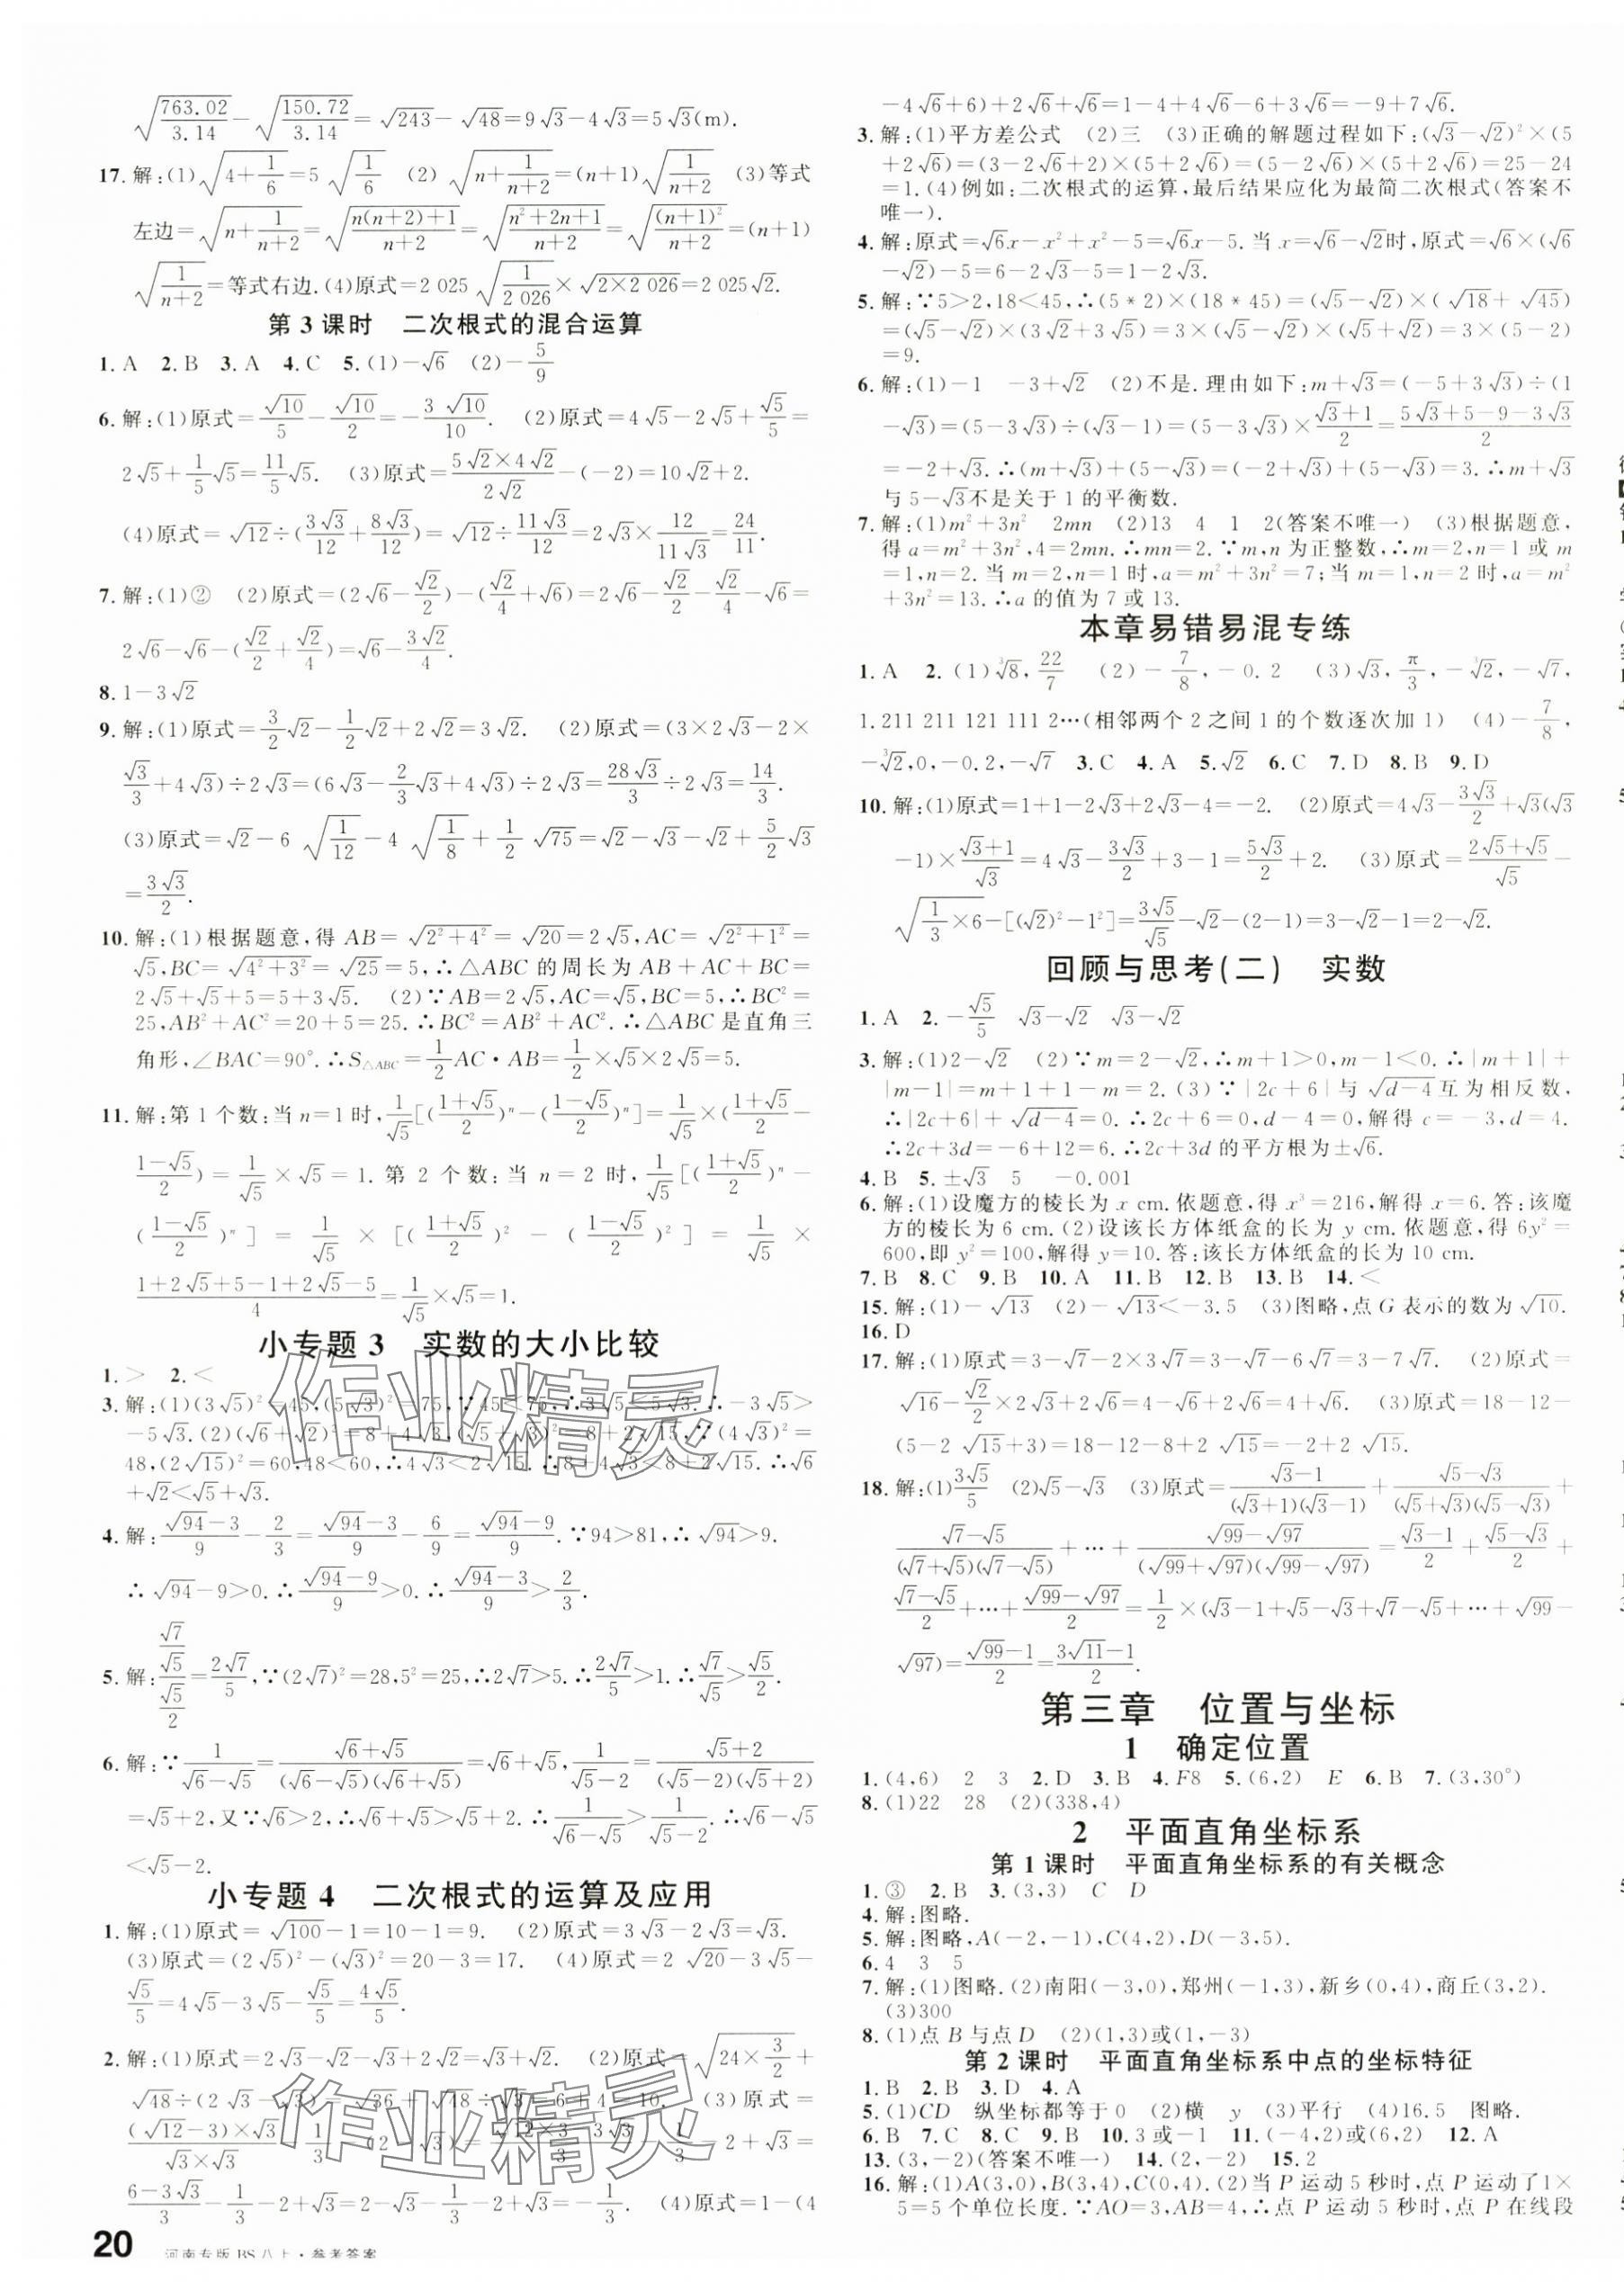 √(763.02/3.14)-√(150.72/3.14)=√243-√48=9√3-4√3=5√3(m).
17.解:(1)√(4+1/6)=5√(1/6) (2)√(n+1/(n+2))=(n+1)√(1/(n+2)) (3)等式
左边=√(n+1/(n+2))=√((n(n+2)+1)/(n+2))=√((n²+2n+1)/(n+2))=√((n+1)²/(n+2))=(n+1)
√(1/(n+2))=等式右边.(4)原式=2 025√(1/2 026)×√(2×2 026)=2 025√2.
第3课时 二次根式的混合运算
1.A 2.B 3.A 4.C 5.(1)-√6 (2)-5/9
6.解:(1)原式=√10/5-√10/2=-3√10/10. (2)原式=4√5-2√5+√5/5=
2√5+1/5√5=11/5√5. (3)原式=(5√2×4√2)/(2√2)-(-2)=10√2+2.
(4)原式=√12÷(3√3/12+8√3/12)=√12÷11√3/12=2√3×12/(11√3)=24/11.
7.解:(1)② (2)原式=(2√6-√2/2)-(√2/4+√6)=2√6-√2/2-√2/4-√6=
2√6-√6-(√2/2+√2/4)=√6-3√2/4.
8.1-3√2
9.解:(1)原式=3/2√2-1/2√2+2√2=3√2. (2)原式=(3×2√3-2×
√3/3+4√3)÷2√3=(6√3-2/3√3+4√3)÷2√3=28√3/3÷2√3=14/3.
(3)原式=√2-6√(1/12)-4√(1/8)+1/2√75=√2-√3-√2+5/2√3
=3√3/2.
10.解:(1)根据题意,得AB=√(2²+4²)=√20=2√5,AC=√(2²+1²)=
√5,BC=√(4²+3²)=√25=5,∴△ABC的周长为AB+AC+BC=
2√5+√5+5=5+3√5. (2)∵AB=2√5,AC=√5,BC=5,∴BC²=
25,AB²+AC²=20+5=25.∴BC²=AB²+AC².∴△ABC是直角三
角形,∠BAC=90°.∴S△ABC=1/2AC·AB=1/2×√5×2√5=5.
11.解:第1个数:当n=1时,1/√5[((1+√5)/2)ⁿ-((1-√5)/2)ⁿ]=1/√5×((1+√5)/2-
(1-√5)/2)=1/√5×√5=1.第2个数:当n=2时,1/√5[((1+√5)/2)ⁿ-
((1-√5)/2)ⁿ]=1/√5×[((1+√5)/2)²-((1-√5)/2)²]=1/√5×
(1+2√5+5-1+2√5-5)/4=1/√5×√5=1.
小专题3 实数的大小比较
1.> 2.<
3.解:(1)(3√5)²=45,(5√3)²=75,∵45<75,∴3√5<5√3.∴-3√5>
-5√3.(2)(√6+√2)²=8+4√3,(√5+√3)²=8+2√15,∵(4√3)²=
48,(2√15)²=60,48<60,∴4√3<2√15.∴8+4√3<8+2√15.∴√6
+√2<√5+√3.
4.解:(√94-3)/9-2/3=(√94-3)/9-6/9=(√94-9)/9.∵94>81,∴√94>9.
∴√94-9>0.∴(√94-9)/9>0.∴(√94-3)/9>2/3.
5.解:(√7/√5)/(√5/2)=2√7/5,∵(2√7)²=28,5²=25,∴2√7>5.∴2√7/5>1.∴√7/√5>√5/2.
6.解:∵1/(√6-√5)=(√6+√5)/((√6-√5)(√6+√5))=√6+√5,1/(√5-2)=(√5+2)/((√5-2)(√5+2))
=√5+2,又∵√6>2,∴√6+√5>√5+2.∴1/(√6-√5)>1/(√5-2).∴√6-√5
<√5-2.
小专题4 二次根式的运算及应用
1.解:(1)原式=√100-1=10-1=9. (2)原式=3√3-2√3=√3.
(3)原式=(2√5)²-(√3)²=20-3=17. (4)原式=2√20-3√5-
√5/5=4√5-3√5-√5/5=4√5/5.
2.解:(1)原式=2√3-√2-√3+2√2=√3+√2. (2)原式=√(24×3/2)+
√48÷(2√3)=√36+√48÷√12=6+√4=... (3)原式=
((√12-3)×√3)/(√3×√3)-1/3 2+√3=
(6-3√3)/3-1/3-2+√3=2-√3-1/3-2+√3=-1/3. (4)原式=1-(4
20 河南专版 BS八上·参考答案
-4√6+6)+2√6+√6=1-4+4√6-6+3√6=-9+7√6.
3.解:(1)平方差公式 (2)三 (3)正确的解题过程如下:(√3-√2)²×(5
+2√6)=(3-2√6+2)×(5+2√6)=(5-2√6)×(5+2√6)=25-24
=1.(4)例如:二次根式的运算,最后结果应化为最简二次根式(答案不
唯一).
4.解:原式=√6x-x²+x²-5=√6x-5.当x=√6-√2时,原式=√6×(√6
-√2)-5=6-2√3-5=1-2√3.
5.解:∵5>2,18<45,∴(5*2)×(18*45)=(√5-√2)×(√18+√45)
=(√5-√2)×(3√2+3√5)=3×(√5-√2)×(√5+√2)=3×(5-2)
=9.
6.解:(1)-1 -3+√2 (2)不是.理由如下:m+√3=(-5+3√3)÷(1
-√3)=(5-3√3)÷(√3-1)=(5-3√3)×(√3+1)/2=(5√3+5-9-3√3)/2
=-2+√3.∴(m+√3)+(5-√3)=(-2+√3)+(5-√3)=3.∴m+√3
与5-√3不是关于1的平衡数.
7.解:(1)m²+3n² 2mn (2)13 4 1 2(答案不唯一) (3)根据题意,
得a=m²+3n²,4=2mn.∴mn=2.∵m,n为正整数,∴m=2,n=1或m
=1,n=2.当m=2,n=1时,a=m²+3n²=7;当m=1,n=2时,a=m²
+3n²=13.∴a的值为7或13.
本章易错易混专练
1.A 2.(1)³√8,22/7 (2)-7/8,-0.2 (3)√3,π/3,-³√2,-√7,
1.211 211 121 111 2…(相邻两个2之间1的个数逐次加1) (4)-7/8,
-³√2,0,-0.2,-√7 3.C 4.A 5.√2 6.C 7.D 8.B 9.D
10.解:(1)原式=1+1-2√3+2√3-4=-2. (2)原式=4√3-3√3/2+√3(√3
-1)×(√3+1)/√3=4√3-3√3/2+3-1=5√3/2+2. (3)原式=(2√5+√5)/√5-
√(1/3×6)-[(√2)²-1²]=3√5/√5-√2-(2-1)=3-√2-1=2-√2.
回顾与思考(二) 实数
1.A 2.-√5/5 √3-√2 √3-√2
3.解:(1)2-√2 (2)∵m=2-√2,∴m+1>0,m-1<0.∴|m+1|+
|m-1|=m+1+1-m=2.(3)∵|2c+6|与√(d-4)互为相反数,
∴|2c+6|+√(d-4)=0.∴2c+6=0,d-4=0,解得c=-3,d=4.
∴2c+3d=-6+12=6.∴2c+3d的平方根为±√6.
4.B 5.±√3 5 -0.001
6.解:(1)设魔方的棱长为x cm.依题意,得x³=216,解得x=6.答:该魔
方的棱长为6 cm.(2)设该长方体纸盒的长为y cm.依题意,得6y²=
600,即y²=100,解得y=10.答:该长方体纸盒的长为10 cm.
7.B 8.C 9.B 10.A 11.B 12.B 13.B 14.<
15.解:(1)-√13 (2)-√13<-3.5 (3)图略,点G表示的数为√10.
16.D
17.解:(1)原式=3-√7-2×3√7=3-√7-6√7=3-7√7. (2)原式=
√16-√2/2×2√2+2√6=4-√6×... 4+√6. (3)原式=18-12-
(5-2√15+3)=18-12-8+2√15=-2+2√15.
18.解:(1)3√5/5 (2)√5-√3 (3)原式=(√3-1)/((√3+1)(√3-1))+(√5-√3)/((√5+√3)(√5-√3))+
(√7-√5)/((√7+√5)(√7-√5))+…+(√99-√97)/((√99+√97)(√99-√97))=(√3-1)/2+(√5-√3)/2+
(√7-√5)/2+…+(√99-√97)/2=1/2×(√3-1+√5-√3+√7-√5+…+√99-
√97)=(√99-1)/2=(3√11-1)/2.
第三章 位置与坐标
1 确定位置
1.(4,6) 2 3 2.D 3.B 4.F8 5.(6,2) E 6.B 7.(3,30°)
8.(1)22 28 (2)(338,4)
2 平面直角坐标系
第1课时 平面直角坐标系的有关概念
1.③ 2.B 3.(3,3) C D
4.解:图略.
5.解:图略,A(-2,-1),C(4,2),D(-3,5).
6.4 3 5
7.解:(1)图略.(2)南阳(-3,0),郑州(-1,3),新乡(0,4),商丘(3,2).
(3)300
8.(1)点B与点D (2)(1,3)或(1,-3)
第2课时 平面直角坐标系中点的坐标特征
1.B 2.B 3.D 4.A
5.(1)CD 纵坐标都等于0 (2)横 y (3)平行 (4)16.5 图略.
6.B 7.C 8.C 9.B 10.3或-1 11.(-4,2)或(6,2) 12.A
13.(3,-2)(答案不唯一) 14.(2,-2) 15.2
16.解:(1)A(3,0),B(3,4),C(0,4).(2)当P运动5秒时,点P运动了1×
5=5个单位长度.∵AO=3,AB=4,∴点P运动5秒时,点P在线段
作业精灵
作业精灵